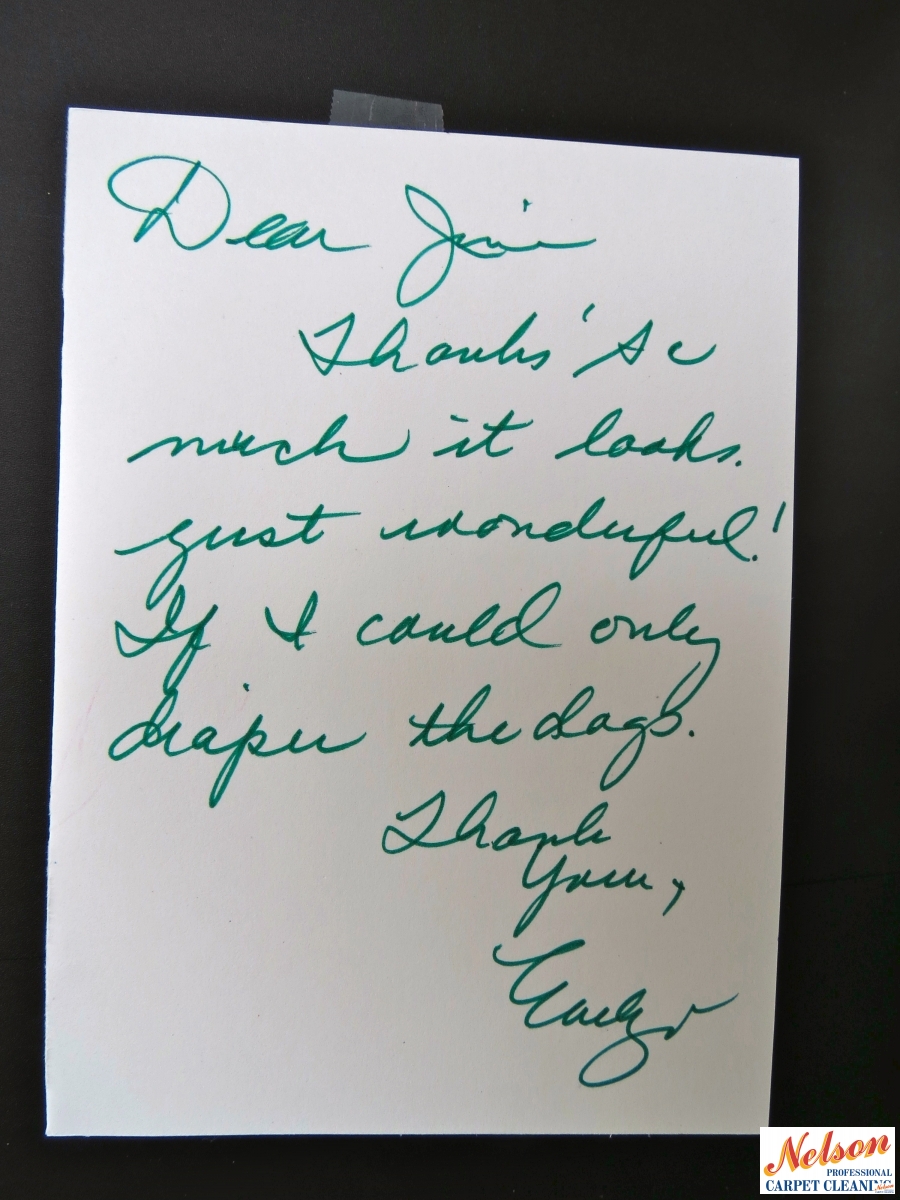 Dear Jim
Thanks so
much it looks
just wonderful!
If I could only
diaper the dogs.
Thank
You,
Nelson
PROFESSIONAL
CARPET CLEANING